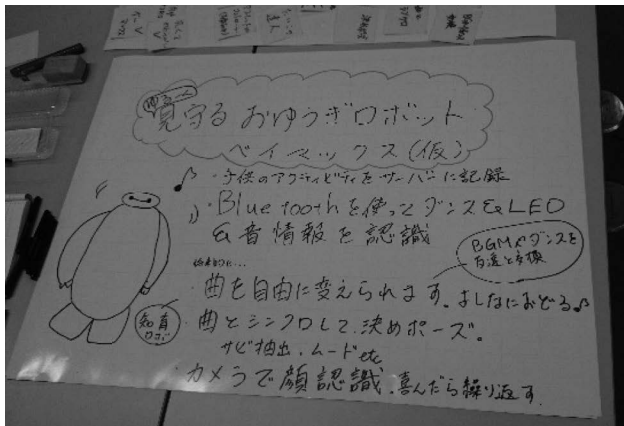 ゆるーく
見守るおゆうぎロボット
ベイマックス(仮)
・子供のアクティビティをサーバーに記録
・Bluetoothを使ってダンス&LED
&音情報を認識
将来的に…
BGMやダンスを
友達と交換
・曲を自由に変えられます。よしなにおどる♪
・曲とシンクロして、決めポーズ。
サビ抽出、ムードetc
・カメラで顔認識、喜んだら繰り返す
知育
ロボ